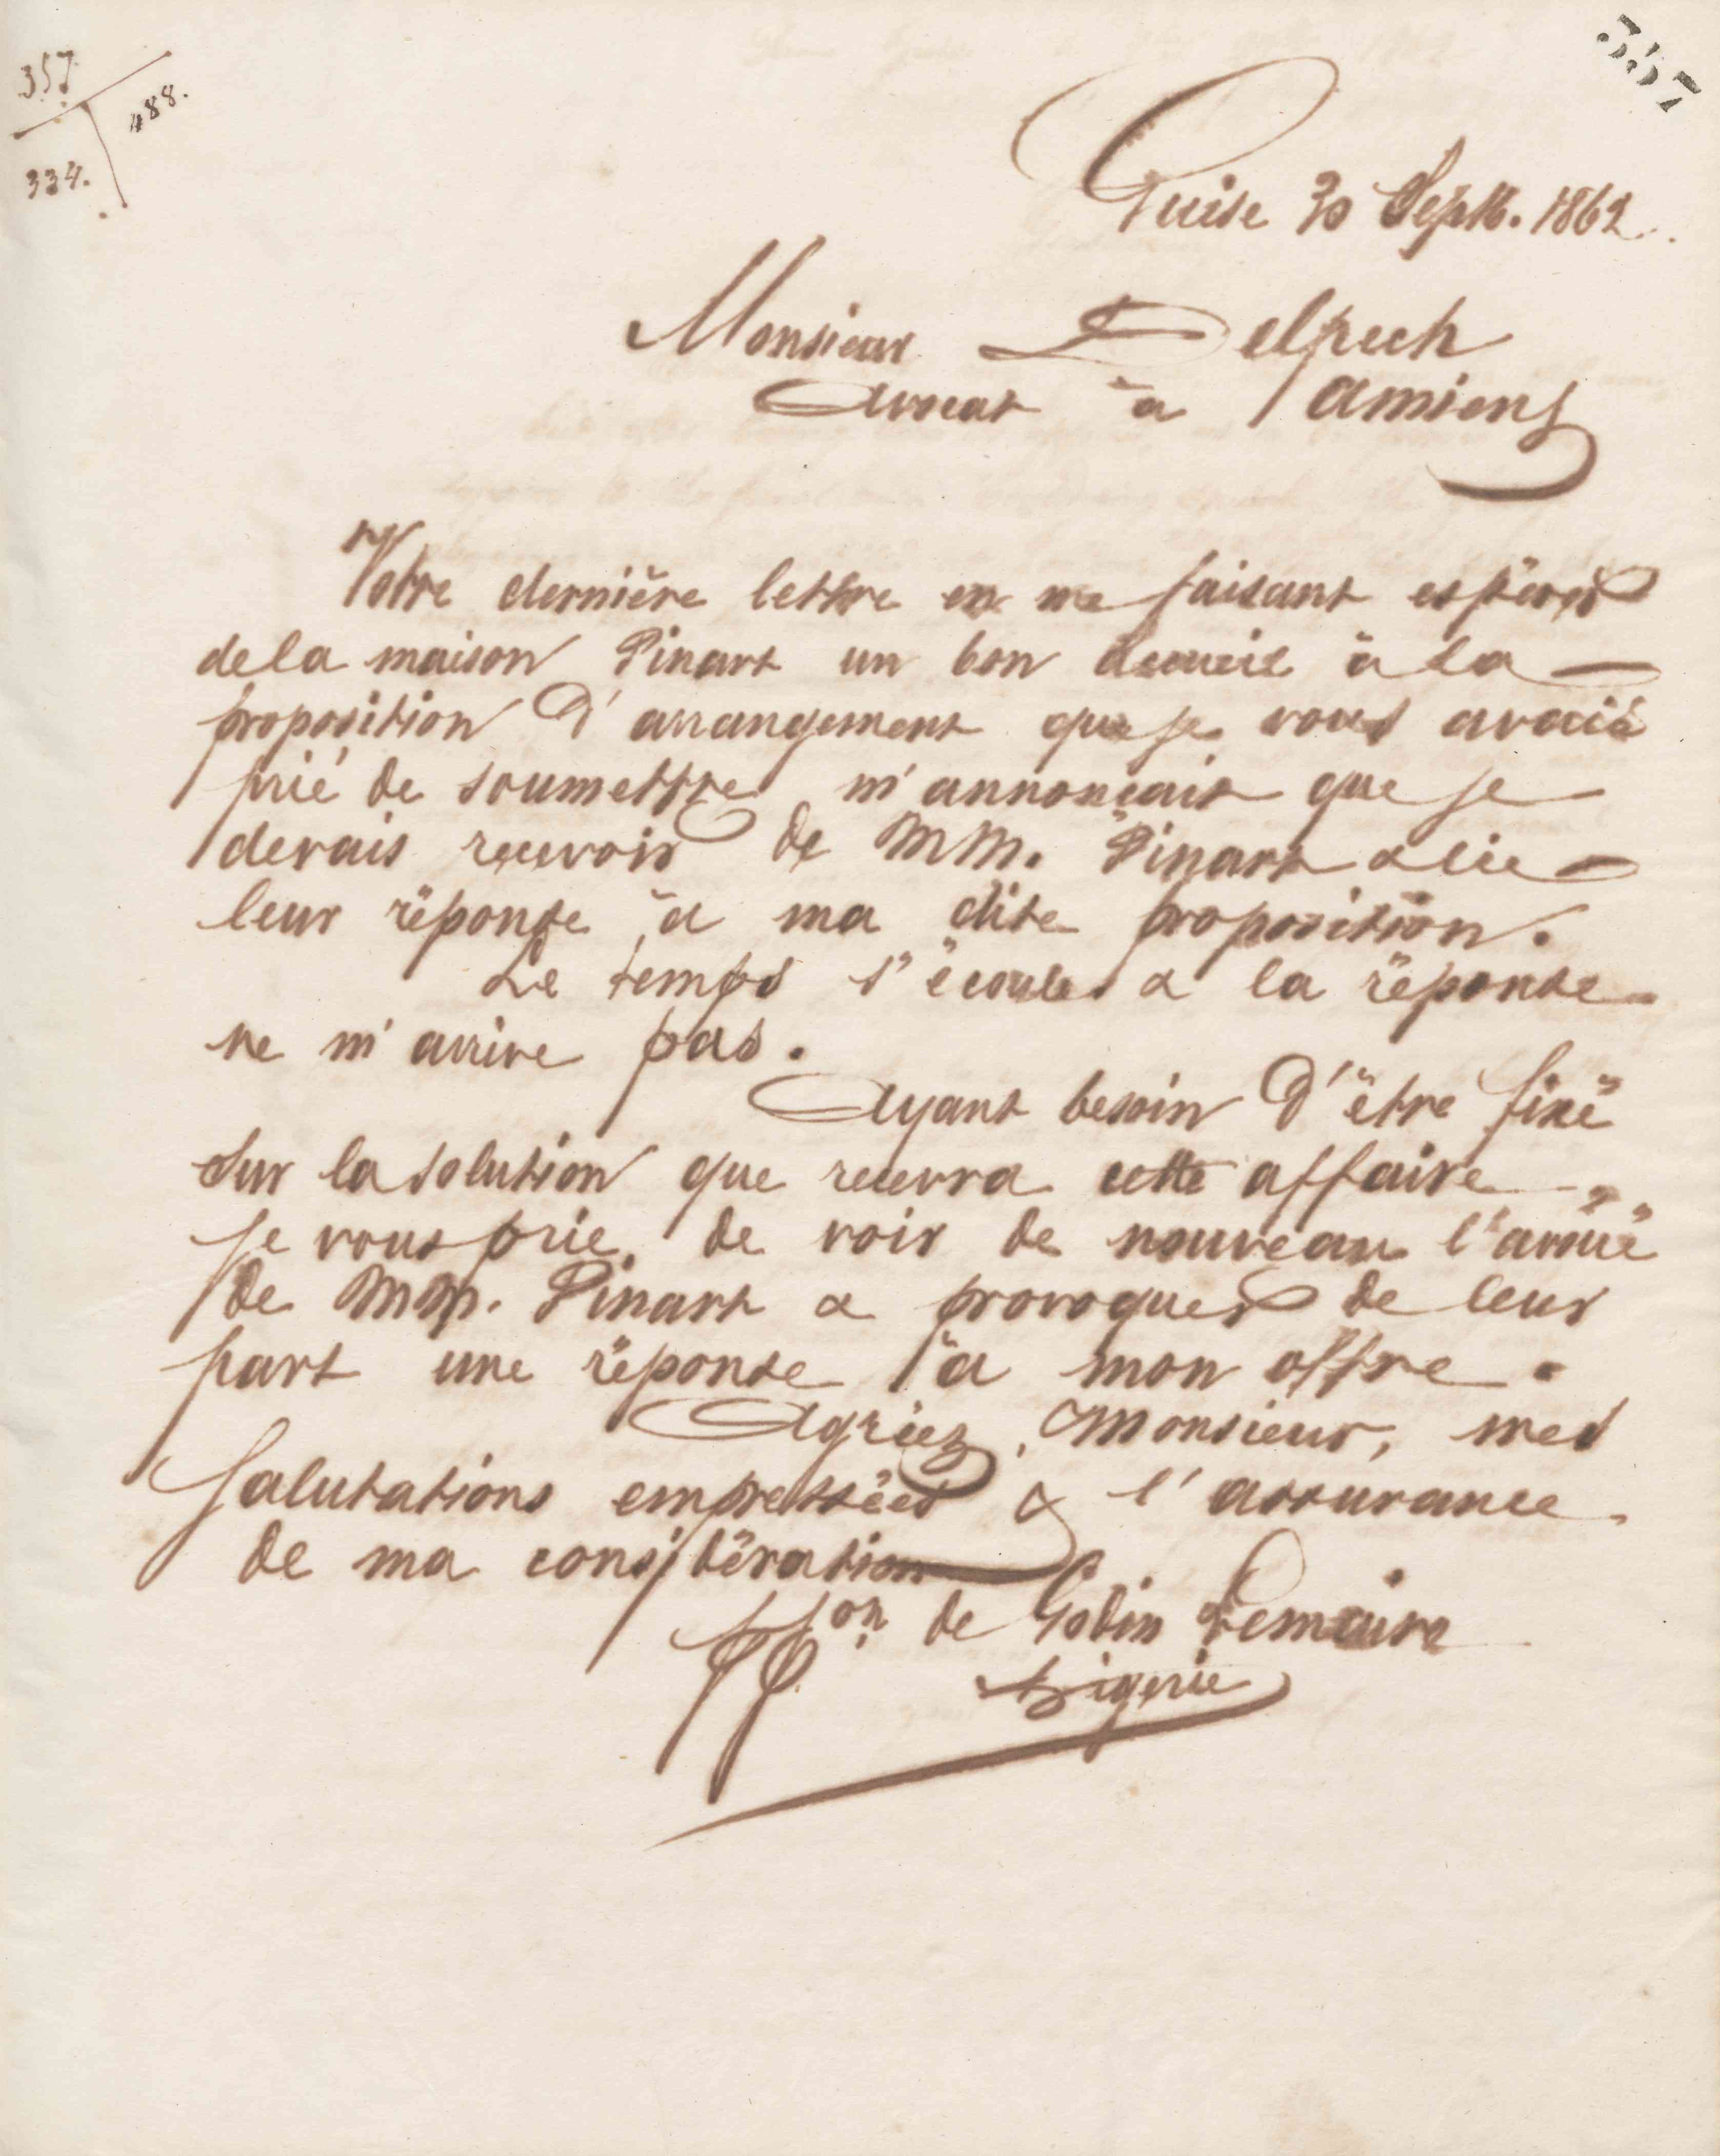 357
488.
334.
357
Guise 30 Septb. 1862.
Monsieur Delpech
avocat à Amiens
Votre dernière lettre en me faisant espérer
de la maison Pinart un bon accueil à la
proposition d'arrangement que je vous avais
prié de soumettre, m'annonçait que je
devais recevoir de MM. Pinart & Cie
leur réponse à ma dite proposition.
Le temps s'écoule & la réponse
ne m'arrive pas.
Ayant besoin d'être fixé
sur la solution que recevra cette affaire,
je vous prie, de voir de nouveau l'avoué
de MM. Pinart & provoquer de leur
part une réponse à mon offre.
Agréez, Monsieur, mes
salutations empressées & l'assurance
de ma considération
pon. de Godin Lemaire